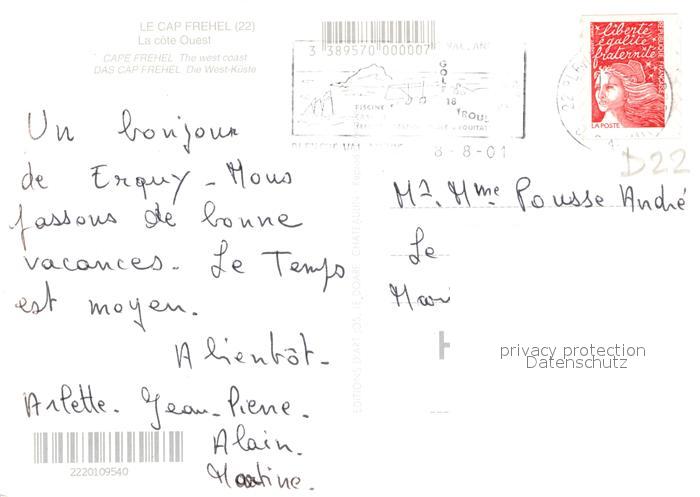 LE CAP FREHEL (22)
La côte Ouest
CAPE FREHEL The west coast
DAS CAP FREHEL Die West-Küste
3 389570 000007
GOLF
18
PISCINE
8-8-01
liberté
égalité
fraternité
REPUBLIQUE FRANÇAISE
LA POSTE
D22
Un bonjour
de Erquy - Nous
passons de bonne
vacances. Le Temps
est moyen.
A bientôt -
Arlette. Jean-Pierre.
Alain.
Martine.
2220109540
EDITIONS D'ART JOS LE DOARE
Mr. Mme Pousse André
Le
privacy protection
Datenschutz